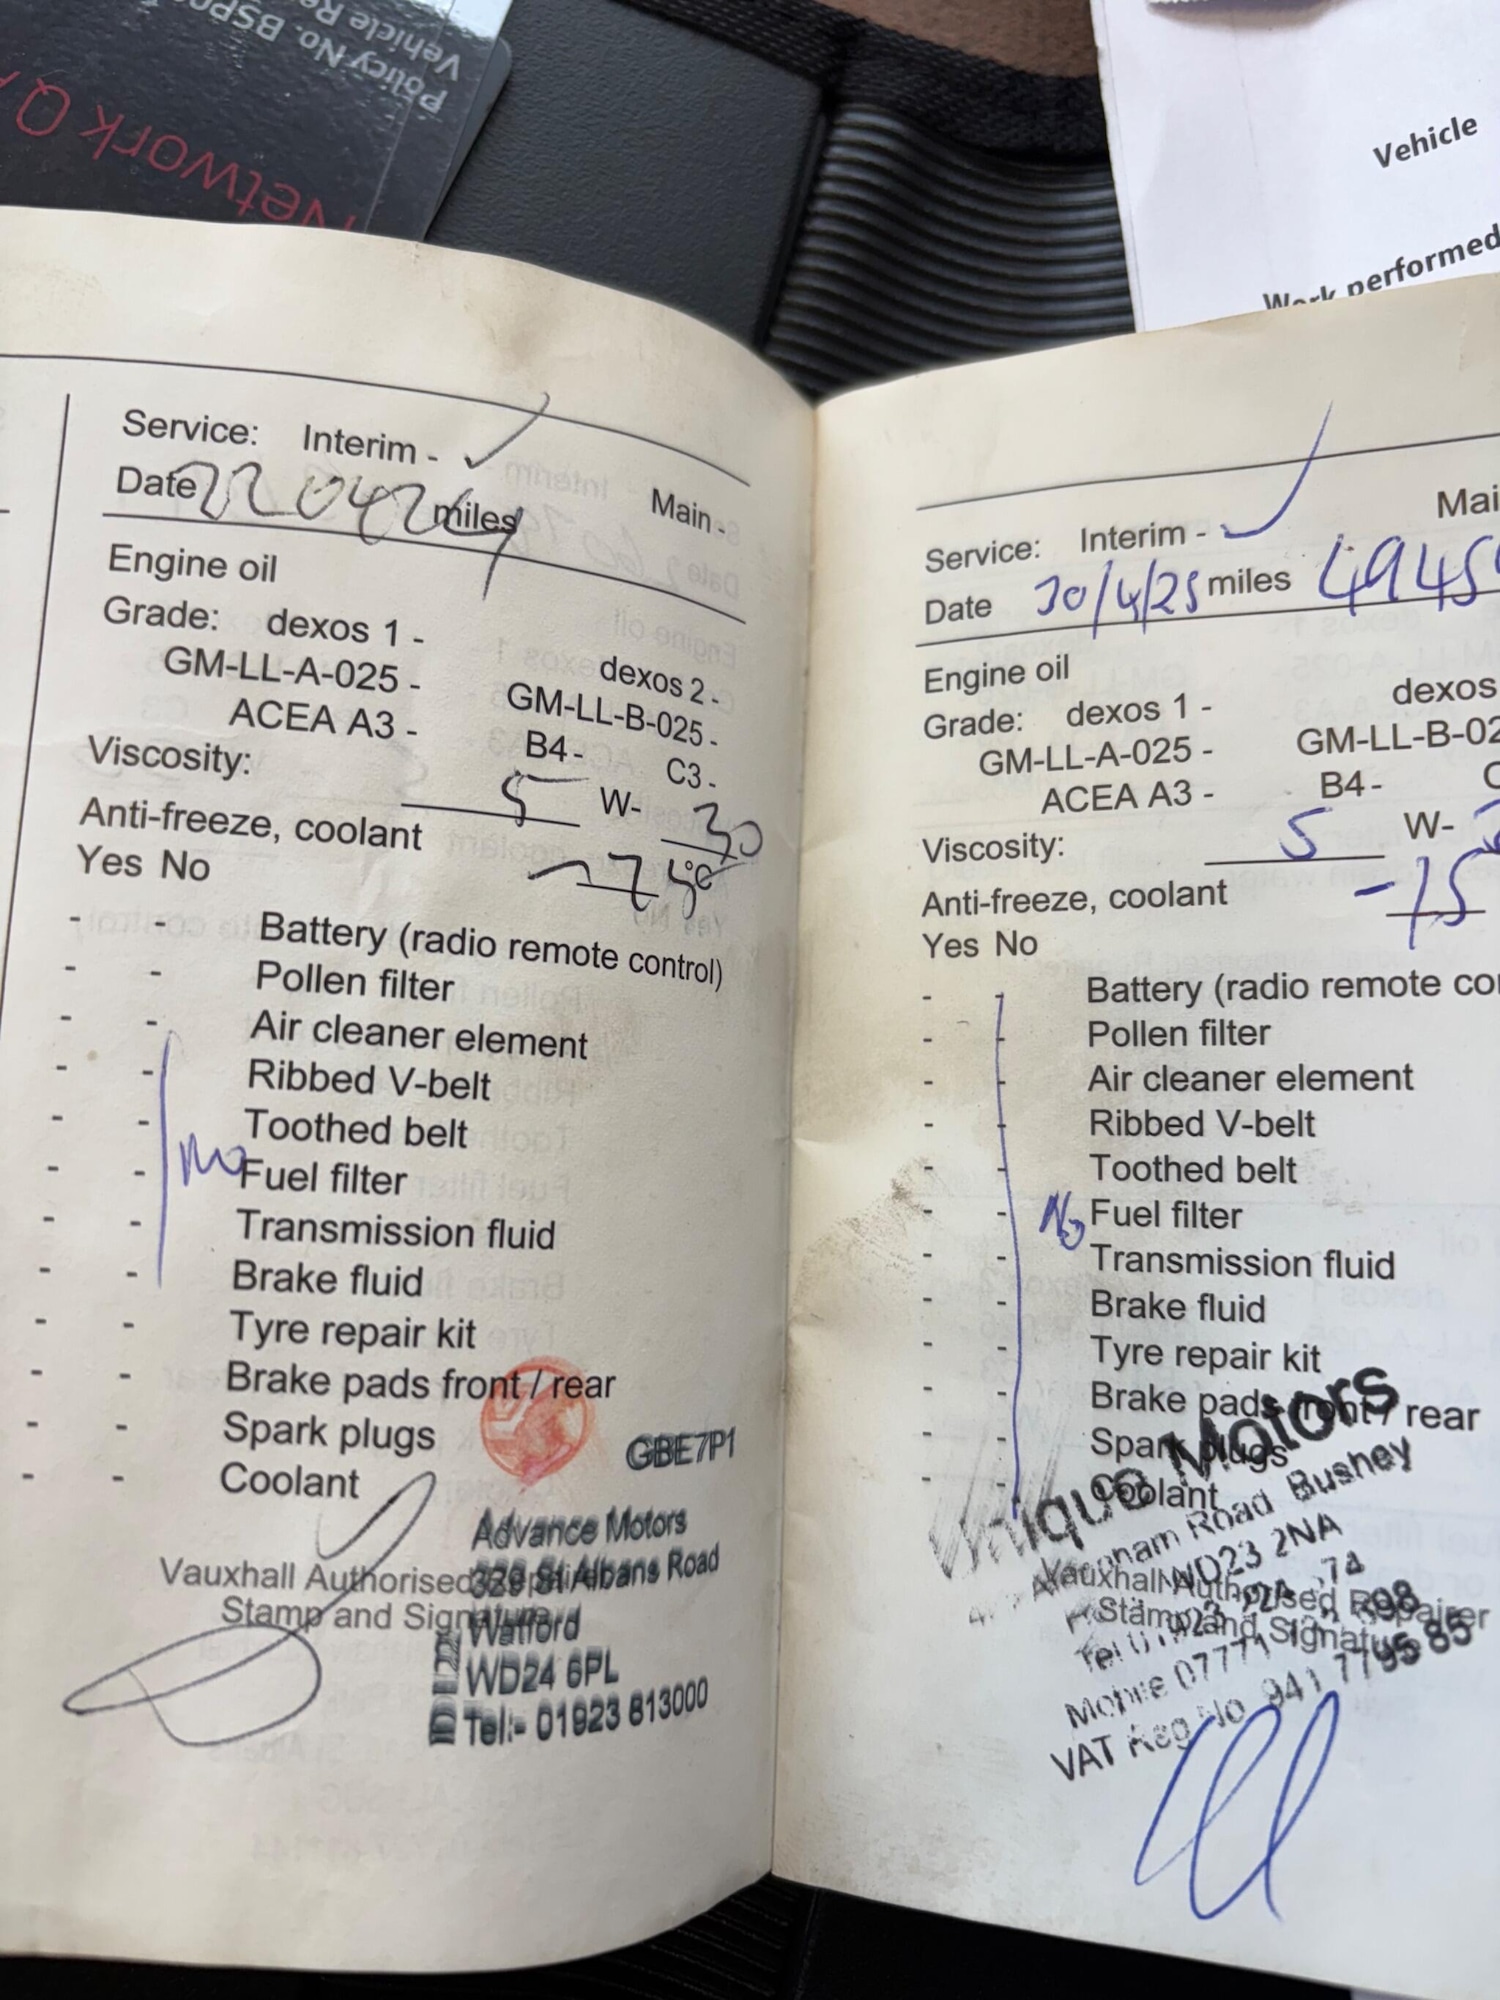 Policy No. BSP
Vehicle Re
Network Q
Vehicle
Work performed
Service: Interim - ✓
Main -
Date 220424 miles
Engine oil
Grade: dexos 1 -
dexos 2 -
GM-LL-A-025 -
GM-LL-B-025 -
ACEA A3 -
B4 -
C3 -
Viscosity: 5 W- 30
Anti-freeze, coolant
Yes No
- - Battery (radio remote control)
- - Pollen filter
- - Air cleaner element
- - Ribbed V-belt
- - Toothed belt
- - No Fuel filter
- - Transmission fluid
- - Brake fluid
- - Tyre repair kit
- - Brake pads front / rear
- - Spark plugs
- - Coolant
GBE7P1
Advance Motors
329 St Albans Road
Watford
WD24 6PL
Tel:- 01923 813000
Vauxhall Authorised Repairer
Stamp and Signature
Mai
Service: Interim - ✓
Date 30/4/25 miles 4945
Engine oil
Grade: dexos 1 -
dexos
GM-LL-A-025 -
GM-LL-B-02
ACEA A3 -
B4 -
C
Viscosity: 5 W-
Anti-freeze, coolant -15
Yes No
- - Battery (radio remote co
- - Pollen filter
- - Air cleaner element
- - Ribbed V-belt
- - Toothed belt
- - No Fuel filter
- - Transmission fluid
- - Brake fluid
- - Tyre repair kit
- - Brake pads front / rear
- - Spark plugs
- - Coolant
Unique Motors
Road Bushey
WD23 2NA
Mobile 07771
VAT Reg No 941 7795 85
Vauxhall Authorised Repairer
Stamp and Signature